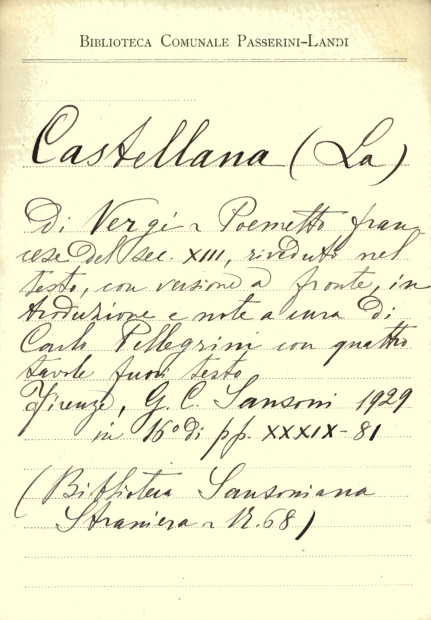 BIBLIOTECA COMUNALE PASSERINI-LANDI
Castellana (La)
Di Vergi ~ Poemetto fran-
cese del sec. XIII, riveduto nel
testo, con versione a fronte, in
troduzione e note a cura di
Carlo Pellegrini con quattro
tavole fuori testo
Firenze, G. C. Sansoni 1929
in 16° di pp. XXXIX-81
(Biblioteca Sansoniana
Straniera ~ N. 68)